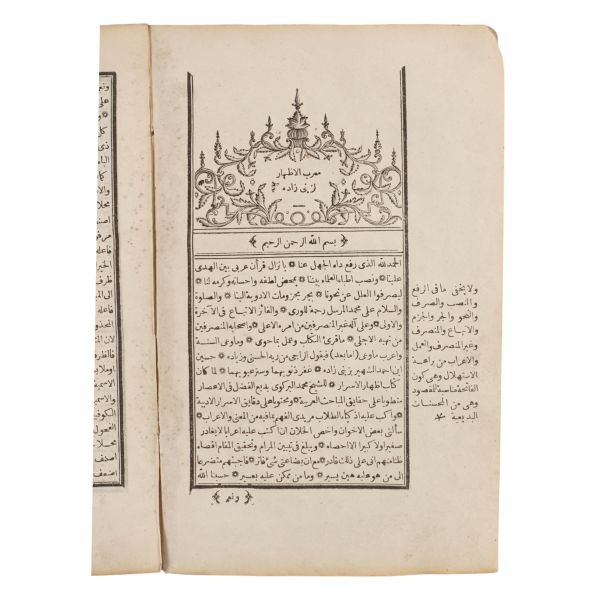 معرب الاظهار
لزينى زاده
بسم الله الرحمن الرحيم
الحمد لله الذى رفع داء الجهل عنا بانزال قرآن عربى بين الهدى
علينا ونصب اطباء العلماء بيننا بمحض لطفه واحسانه وكرمه لنا
ليصرفوا العلل عن نحونا بجر مجزومات الادوية الينا والصلوة
والسلام على محمد المرسل رحمة للورى والفائز الاتباع فى الآخرة
والاولى وعلى آله غير المنصرفين من امره الاعلى واصحابه المنصرفين
من نهيه الاجلى ماقرئ الكتاب وعمل بماحوى وماوى السنة
واعرب ماوى امابعد فيقول الراجى من ربه الحسنى وزياده حسين
ابن احمد الشهير بزينى زاده غفر ذنوبهما وستر عيوبهما لما كان
كتاب اظهار الاسرار للشيخ محمد البركوى بديع الفضل فى الاعصار
منطويا على حقايق المباحث العربية ومحتويا على دقايق الاسرار الادبية
واكب عليه اذكياء الطلاب مريدى الفهم بمافيه من المعنى والاعراب
سألنى بعض الاخوان واخص الخلان ان اكتب عليه اعرابا لايغادر
صغيرا ولا كبيرا الا احصاه ويبلغ فى تبيين المرام وتحقيق المقام اقصاه
ظنا منهم انى على ذلك قادر مع ان بضاعتى شئ فاتر فاجبتهم متضرعا
الى من هو عليه هين يسير وما من ممكن عليه بعسير حسبنا الله
ونعم
ولا يخفى مافى الرفع
والنصب والصرف
والنحو والجر والجزم
والاتباع والمنصرف
وغير المنصرف والعمل
والاعراب من براعة
الاستهلال وهى كون
الفاتحة مناسبة للمقصود
وهى من المحسنات
البديعية